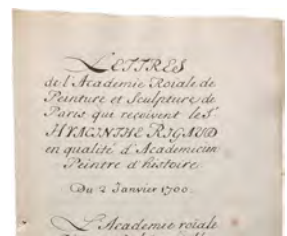 LETTRES
de l'Academie Roiale de
Peinture et Sculpture de
Paris qui reçoivent le S.r
HYACINTHE RIGAUD
en qualité d'Academicien
Peintre d'histoire.
Du 2 Janvier 1700.
L'Academie roïale